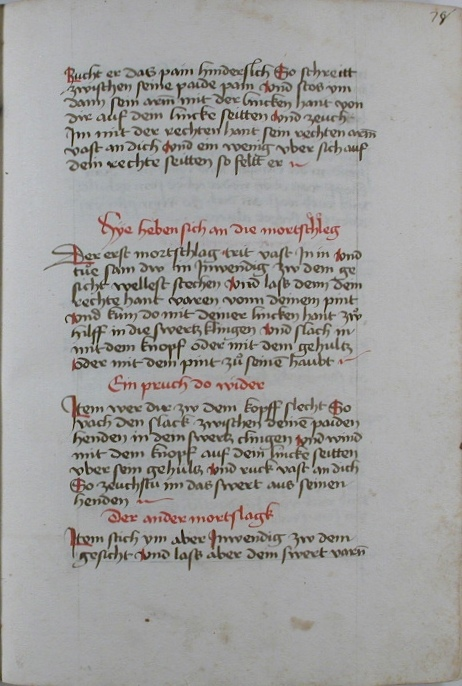 78
Rucht er das pain hindersich So schreitt
zwischen seine paide pain Vnd stos ym
dann sein arm mit der lincken hant von
dir auf dein lincke seitten Vnd zeuch
Im mit der rechten hant sein rechten arm
vast an dich Vnd ein wenig vber sich auf
dein rechte seitten so felt er
Hye heben sich an die mortschleg
Der erst mortschlag trit vast In in Vnd
tue sam dw in Inwendig zw dem ge
sicht wellest stechen Vnd lass dem dein
rechte hant varen vonn deinem pint
Vnd kum do mit deiner lincken hant zw
hilff in die swertz klingen Vnd slach in
mit dem knopf oder mit dem gehultz
oder mit dem pint zu seine haubt
Ein pruch do wider
Item wer dir zw dem kopff slecht So
vach den slack zwischen deine paiden
henden in dein swertz clingen Vnd wind
mit dem knopf auf dein lincke seitten
vber sein gehultz Vnd ruck vast an dich
So zeuchstu im das swert aus seinen
henden
Der ander mortslagk
Item stich ym aber Inwendig zw dem
gesicht Vnd lass aber dem swert varn